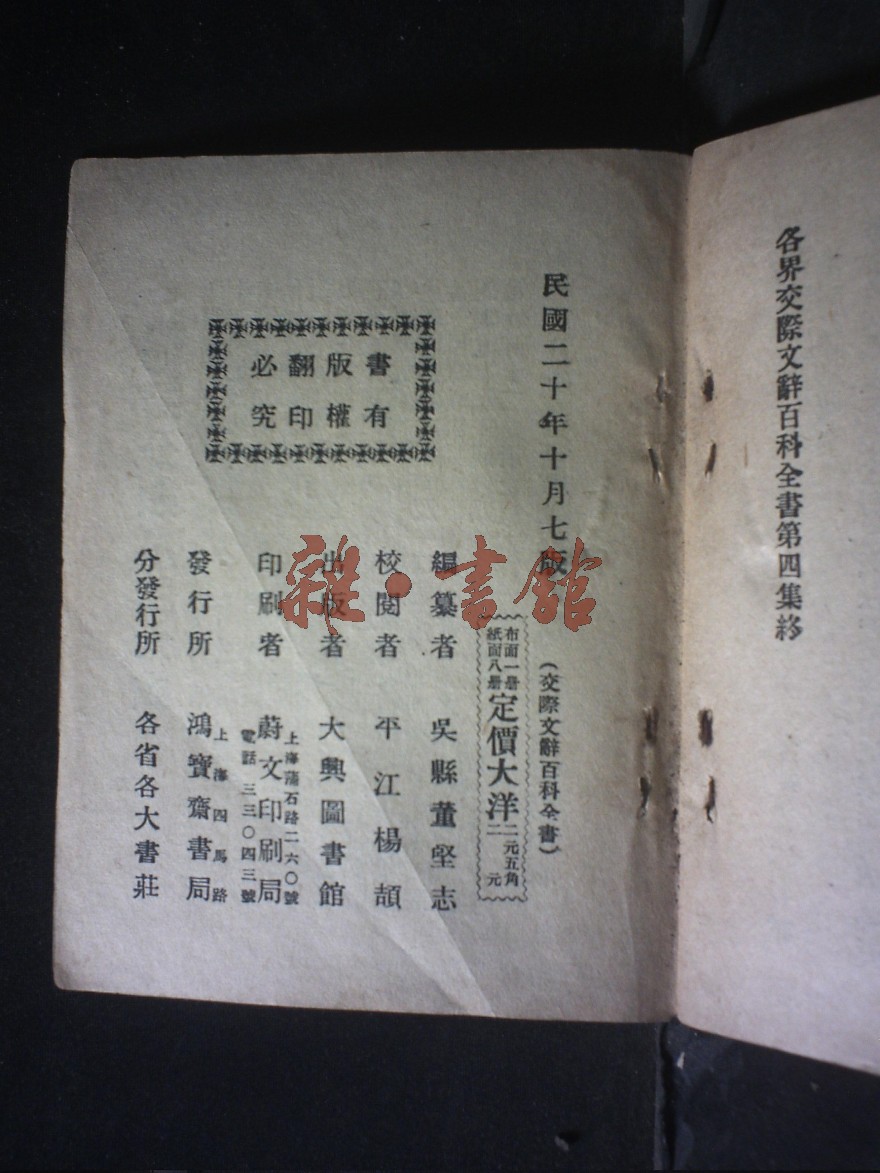 各界交際文辭百科全書第四集終
民國二十年十月七版
(交際文辭百科全書)
布面一册
紙面八册
定價大洋
二元五角
二元
書有
版權
翻印
必究
編纂者 吳縣董堅志
校閱者 平江楊頡
出版者 大興圖書館
上海蒲石路二六〇號
印刷者 蔚文印刷局
電話三三〇四三號
上海四馬路
發行所 鴻寶齋書局
分發行所 各省各大書莊
雜·書館